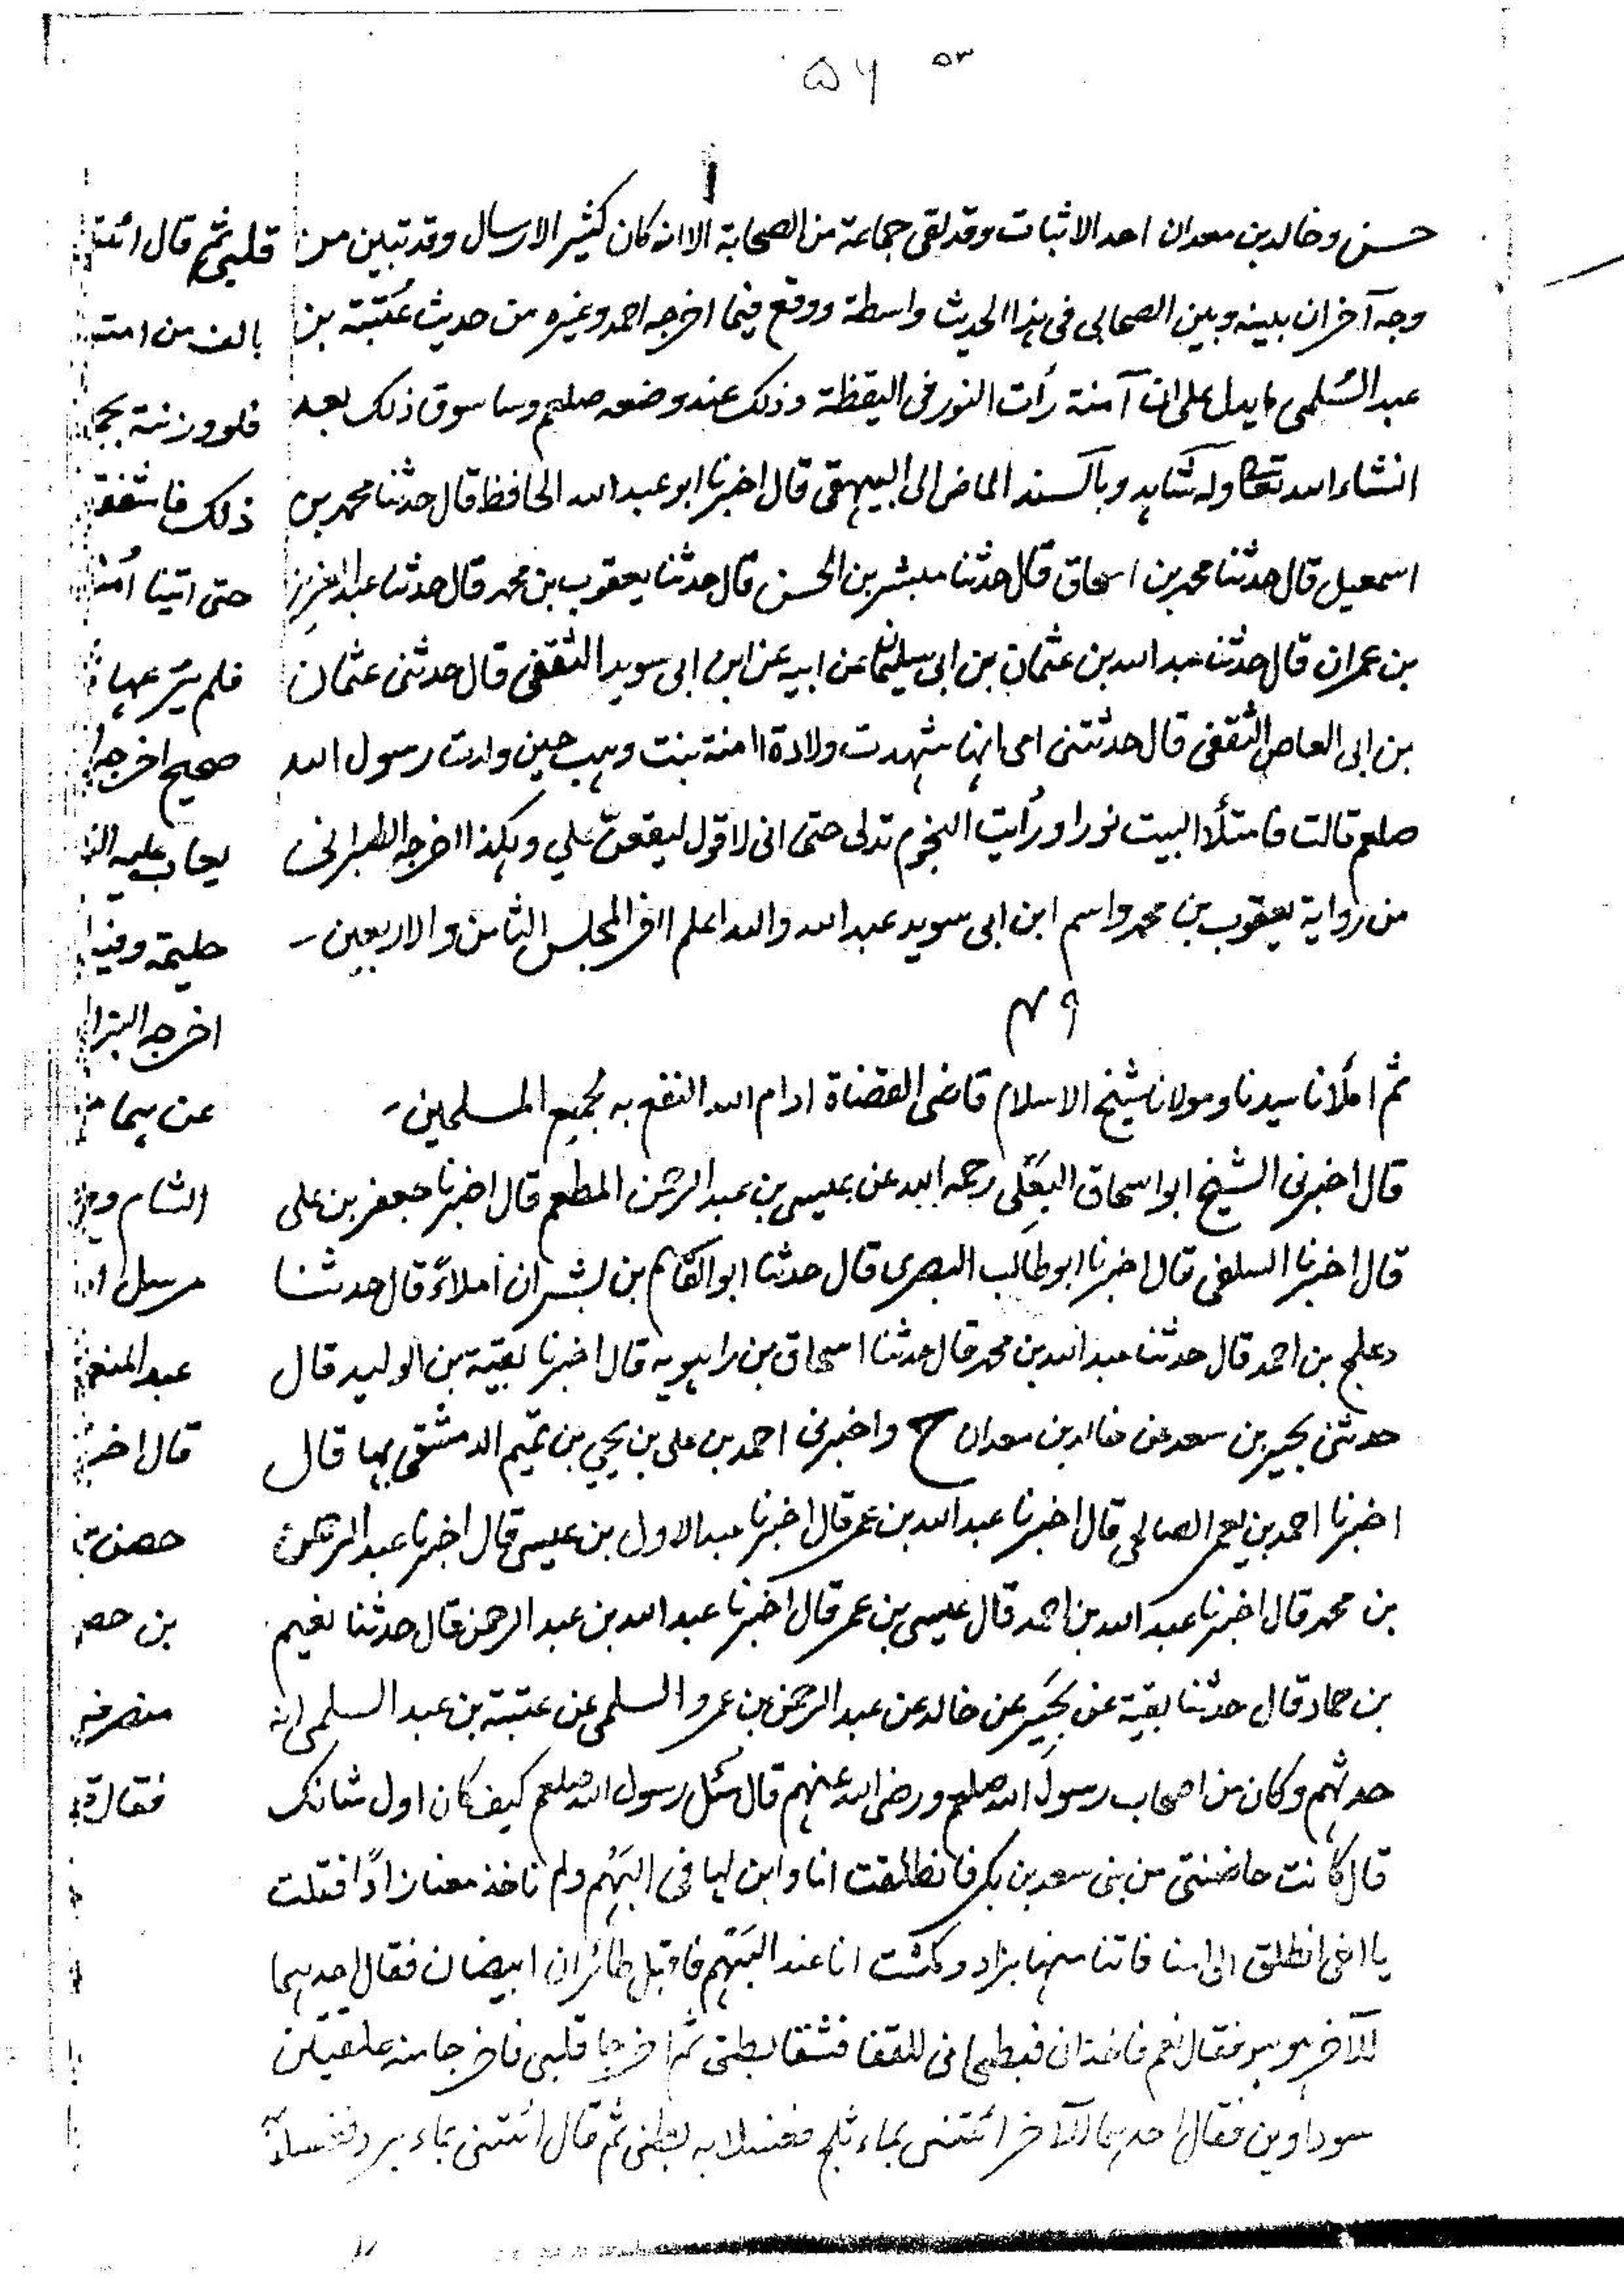 ۵۶ ۵۳
حسن وخالد بن معدان احد الاثبات وقد لقی جماعة من الصحابة الا انه کان کثیر الارسال وقد تبین من
وجه آخر ان بینه وبین الصحابی فی هذا الحدیث واسطة ووقع فیما اخرجه احمد وغیره من حدیث عُتبة بن
عبد السُلمی ما یدل علی ان آمنة رأت النور فی الیقظة وذلک عند وضعه صلعم وساسوق ذلک بعد
انشاء الله تعالی وله شاهد وبالسند الماضی الی البیهقی قال اخبرنا ابو عبد الله الحافظ قال حدثنا محمد بن
اسمعیل قال حدثنا محمد بن اسحاق قال حدثنا مبشر بن الحسن قال حدثنا یعقوب بن محمد قال حدثنا عبد العزیز
بن عمران قال حدثنا عبد الله بن عثمان بن ابی سلیمان عن ابیه عن ابن ابی سوید الثقفی قال حدثنی عثمان
بن ابی العاص الثقفی قال حدثتنی امی انها شهدت ولادة امنة بنت وهب حین ولدت رسول الله
صلعم قالت فامتلأ البیت نورا ورأیت النجوم تدلی حتی انی لاقول لیقعن علی وهکذا اخرجه الطبرانی
من روایة یعقوب بن محمد واسم ابن ابی سوید عبد الله والله اعلم آخر المجلس الثامن والاربعین۔
۴۹
ثم املأنا سیدنا ومولانا شیخ الاسلام قاضی القضاة ادام الله النفع به لجمیع المسلمین۔
قال اخبرنی الشیخ ابو اسحاق البَعَلی رحمه الله عن عیسی بن عبد الرحمن المطعم قال اخبرنا جعفر بن علی
قال اخبرنا السلفی قال اخبرنا ابو طالب البصری قال حدثنا ابو القاسم بن بشران املاءً قال حدثنا
دعلج بن احمد قال حدثنا عبد الله بن محمد قال حدثنا اسحاق بن راهویه قال اخبرنا بقیة بن الولید قال
حدثنی بحیر بن سعد عن خالد بن معدان ح واخبرنی احمد بن علی بن یحیی بن تمیم الدمشقی بها قال
اخبرنا احمد بن نعمة الصالحی قال اخبرنا عبد الله بن عمر قال اخبرنا عبد الاول بن عیسی قال اخبرنا عبد الرحمن
بن محمد قال اخبرنا عبد الله بن احمد قال عیسی بن عمر قال اخبرنا عبد الله بن عبد الرحمن قال حدثنا نعیم
بن حماد قال حدثنا بقیة عن بَحیر عن خالد عن عبد الرحمن بن عمرو السلمی عن عتبة بن عبد السلمی انه
حدثهم وکان من اصحاب رسول الله صلعم ورضی الله عنهم قال سُئل رسول الله صلعم کیف کان اول شانک
قال کانت حاضنتی من بنی سعد بن بکر فانطلقت انا وابن لها فی البَهْم ولم ناخذ معنا زاداً فقلت
یا اخی انطلق الی امنا فاتنا منها بزاد ومکثت انا عند البَهْم فاقبل طائران ابیضان فقال احدهما
للآخر هو هو فقال نعم فاخذان فبطحانی للقفا فشقا بطنی ثم اخرجا قلبی فاخرجا منه علقتین
سوداوین فقال احدهما للآخر ائتنی بماء ثلج فغسلا به بطنی ثم قال ائتنی بماء برد فغسلا به
قلبی ثم قال ائت
بالف من امته
فلو وزنته بجـ
ذلک فاشفق
حتی اتینا اُمـ
فلم یَرُعها
صحیح اخرجه
یعاب علیه
حلیمة وفیه
اخرجه البزا
عن
الشام
مرسل
عبد المنعم
قال اخبر
حصن
بن حصـ
منصرفه
فقال